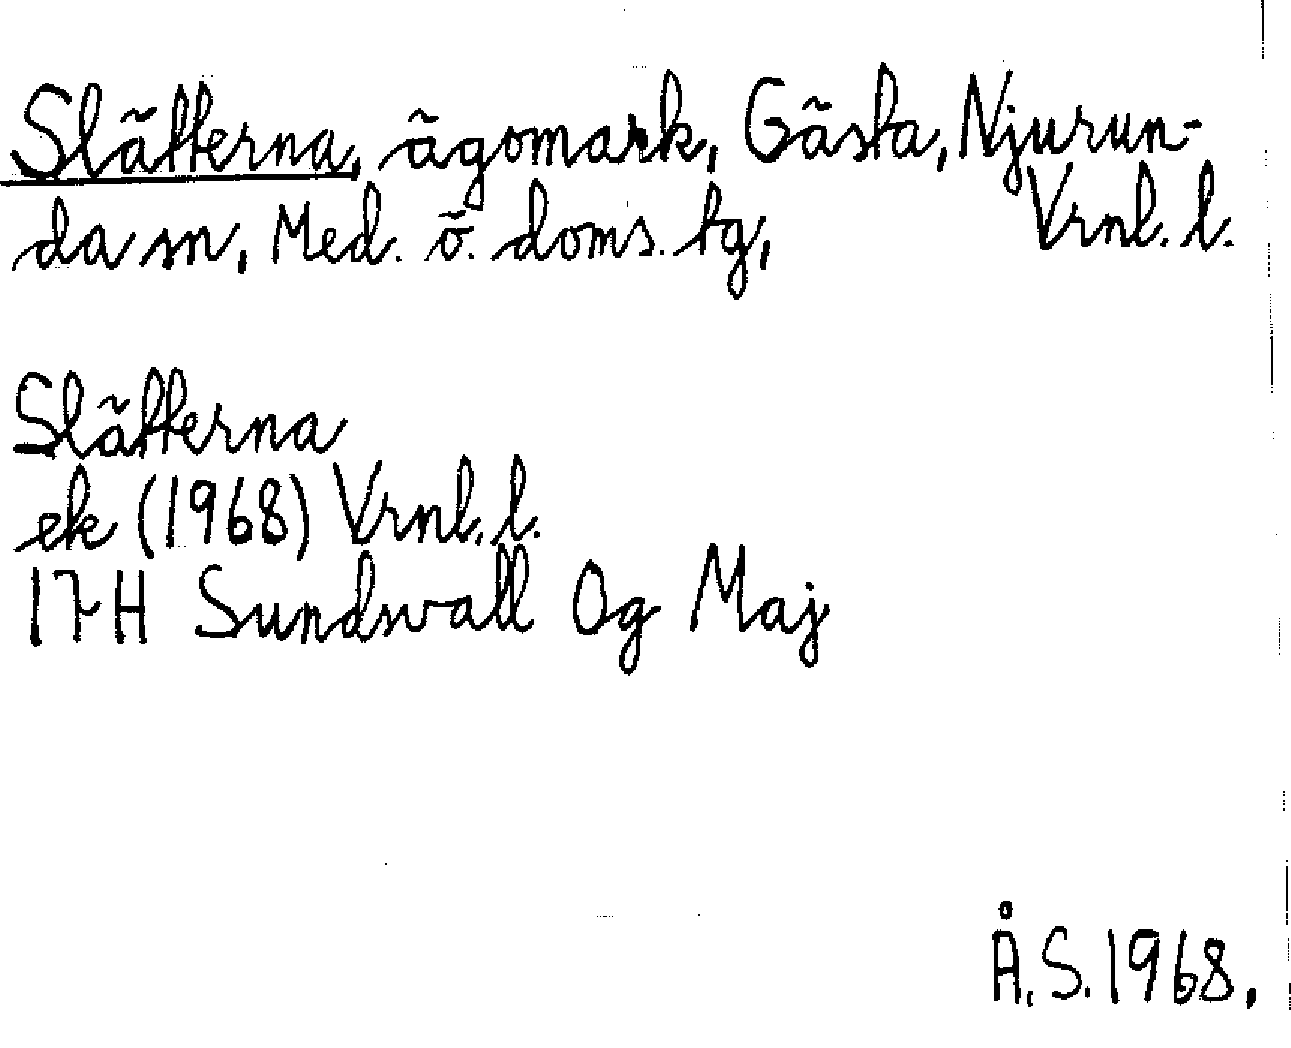 Slätterna, ägomark, Gästa, Njurun-
da sn, Med. ö. doms. tg, Vrnl. l.
Slätterna
ek (1968) Vrnl. l.
17H Sundsvall Og Maj
Å.S. 1968.